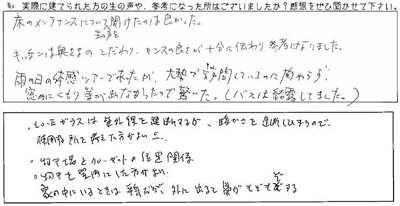 実際に建てられた方の生の声や、参考になった所はございましたか？感想をぜひ聞かせて下さい。
床のメンテナンスについて聞けたのは良かった。
生の声
キッチンは奥さまのこだわり、センスの良さが十分に伝わり参考になりました。
雨の日の体感ツアーで来たが、大勢で訪問しているのに関わらず
窓ガラスにくもり等が出なかったので驚いた。(バスは結露してました。)
ガラスは紫外線を遮断するが、暖かさも遮断しうるので、
使用場所を考えた方がよい
・物干し場とクローゼットの位置関係
・物干も室内にした方がよい
家の中にいるときは平気だが外に出ると鼻がもどもどする